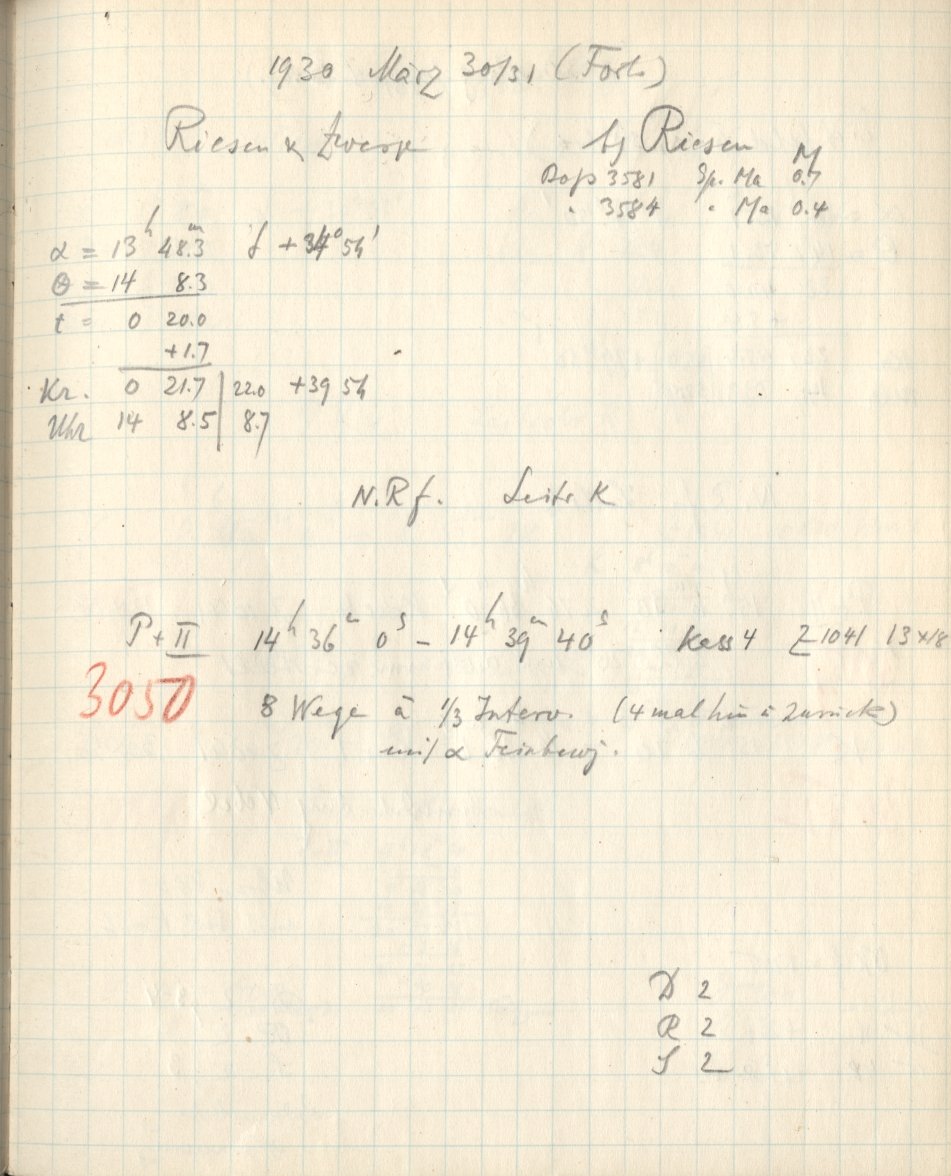 1930 März 30/31 (Forts)
Riesen & Zwerge b) Riesen
M
3581 Sp. Ma 0.7
" 3584 " Ma 0.4
α = 13h 48.3m δ +34° 54'
Θ = 14 8.3
t = 0 20.0
+1.7
Kr. 0 21.7 | 22.0 +39 54
Uhr 14 8.5 | 8.7
N.Rf. Seite K
P + II 14h 36m 0s – 14h 39m 40s Kass 4 Z 1041 13x18
3050
8 Wege à 1/3 Interv. (4 mal hin u zurück)
mit α Feinbeweg.
D 2
R 2
S 2